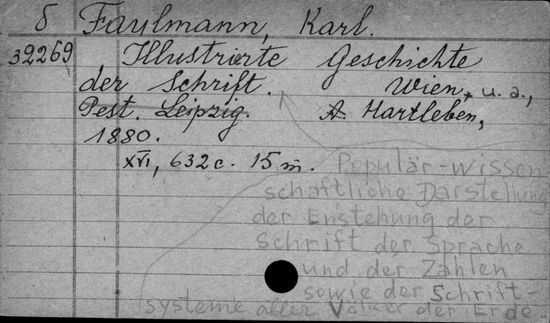 б Faulmann, Karl.
39269 Illustrirte Geschichte
der Schrift. Wien, u. a.,
Pest. Leipzig. A. Hartleben,
1880.
XVI, 632 c. 15 m.
Populär-wissen
schaftliche Darstellung
der Enstehung der
Schrift der Sprache
und der Zahlen
sowie der Schrift-
systeme aller Völker der Erde